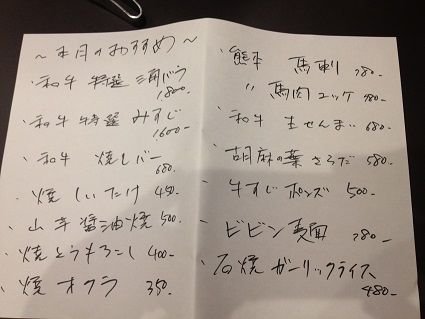 ～本月のおすすめ～
・和牛 特選 三角バラ
1,800-
・和牛 特選 みすじ
1,600-
・和牛 焼レバー
680-
・焼 しいたけ 450-
・山芋醤油焼 500-
・焼とうもろこし 400-
・焼 オクラ 350-
・熊本 馬刺 980-
・〃 馬肉ユッケ 980-
・和牛 生せんまい 680-
・胡麻の葉さらだ 580-
・牛すじポンズ 500-
・ビビン麺 980-
・石焼ガーリックライス
480-